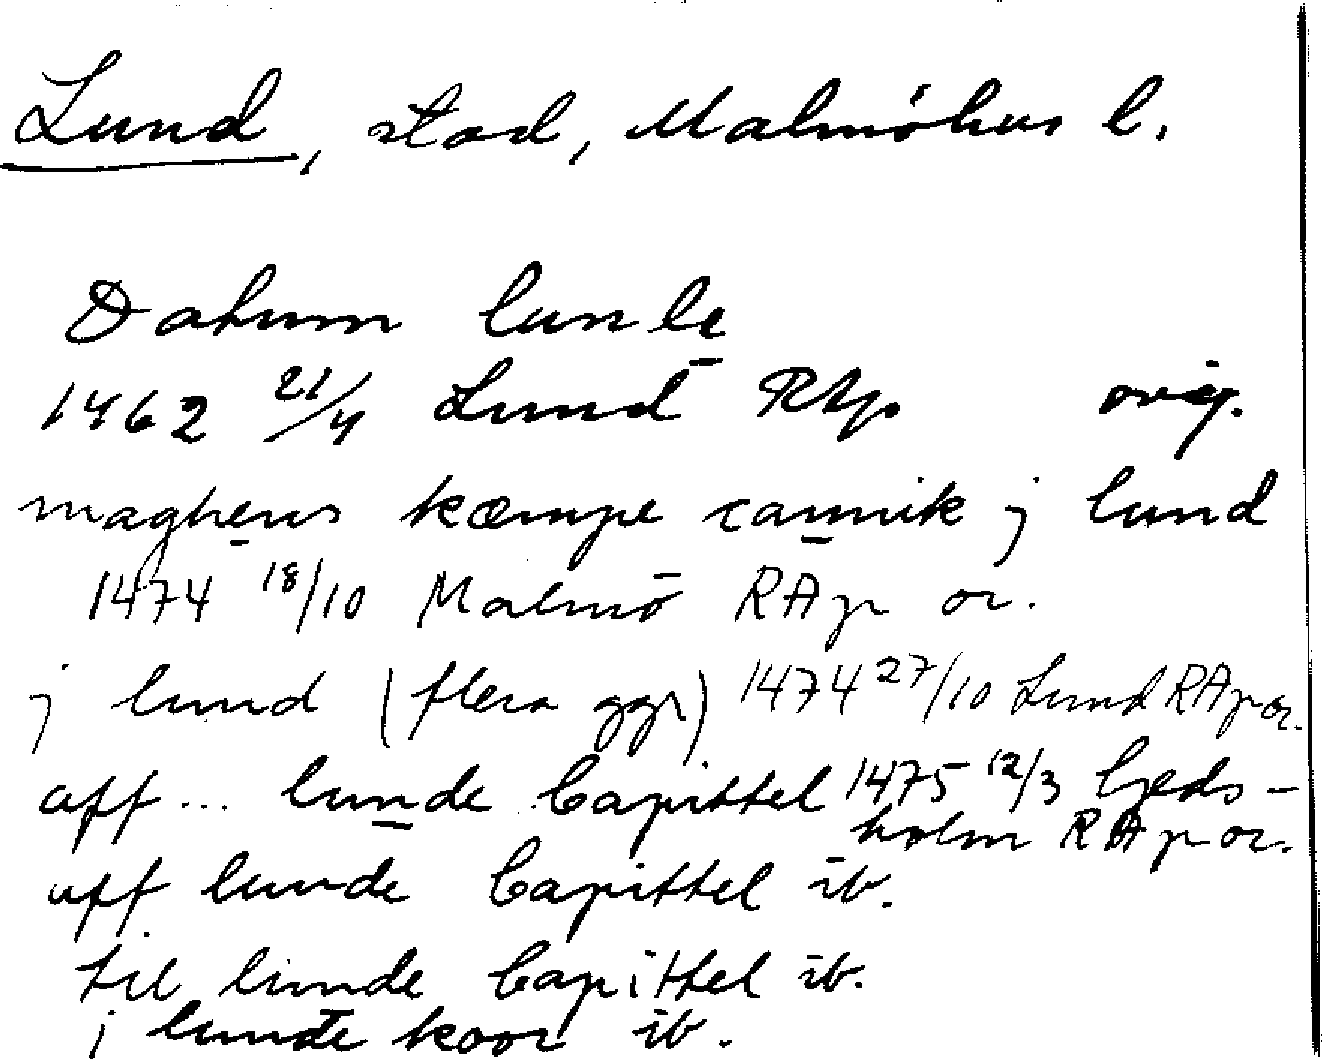 Lund, stad, Malmöhus l.
Datum lunde
1462 21/4 Lund RAp. orig.
maghens kæmpe cannik j lund
1474 18/10 Malmö RAp or.
j lund (flera ggr) 1474 27/10 Lund RAp or.
aff... lunde Capittel 1475 12/3 Gjeds-
holm RAp or.
aff lunde Capittel ib.
til lunde Capittel ib.
j lunde koor ib.